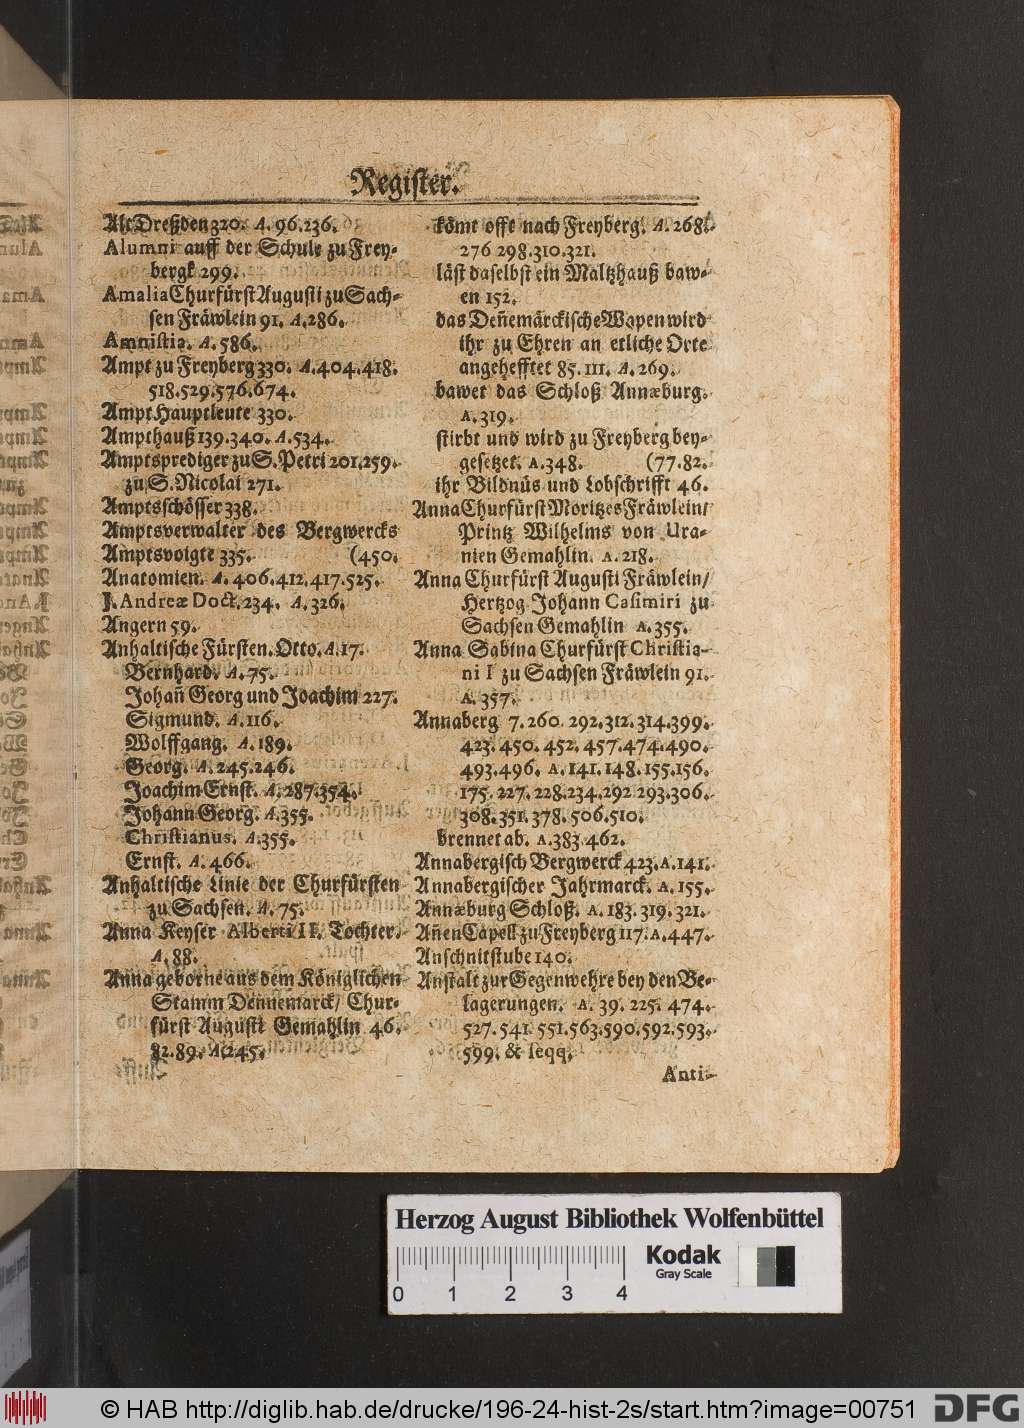 Register.
Alt Dreßden 320. A. 96. 236.
Alumni auff der Schule zu Frey-
bergk 299.
Amalia Churfürst Augusti zu Sach-
sen Fräwlein 91. A. 286.
Amnistia. A. 586.
Ampt zu Freyberg 330. A. 404. 418.
518. 529. 576. 674.
Ampt Hauptleute 330.
Ampthauß 139. 340. A. 534.
Amptsprediger zu S. Petri 201. 259.
zu S. Nicolai 271.
Amptsschösser 338.
Amptsverwalter des Bergwercks
Amptsvoigte 335. (450.
Anatomien. A. 406. 412. 417. 525.
J. Andreæ Doct. 234. A. 326.
Angern 59.
Anhaltische Fürsten. Otto. A. 17.
Bernhard. A. 75.
Johan̄ Georg und Joachim 227.
Sigmund. A. 116.
Wolffgang. A. 189.
Georg. A. 245. 246.
Joachim Ernst. A. 287. 354.
Johann Georg. A. 355.
Christianus. A. 355.
Ernst. A. 466.
Anhaltische Linie der Churfürsten
zu Sachsen. A. 75.
Anna Keyser Alberti II. Tochter.
A. 88.
Anna geborne aus dem Königlichen
Stamm Dennemarck/ Chur-
fürst Augusti Gemahlin 46.
82. 89. A. 245.
kömt offt nach Freyberg. A. 268.
276 298. 310. 321.
läst daselbst ein Maltzhauß baw-
en 152.
das Den̄emärckische Wapen wird
ihr zu Ehren an etliche Orte
angehefftet 85. 111. A. 269.
bawet das Schloß Annæburg.
A. 319.
stirbt und wird zu Freyberg bey-
gesetzet. A. 348. (77. 82.
ihr Bildnüs und Lobschrifft 46.
Anna Churfürst Moritzes Fräwlein/
Printz Wilhelms von Ura-
nien Gemahlin. A. 218.
Anna Churfürst Augusti Fräwlein/
Hertzog Johann Casimiri zu
Sachsen Gemahlin A. 355.
Anna Sabina Churfürst Christia-
ni I zu Sachsen Fräwlein 91.
A. 357.
Annaberg 7. 260. 292. 312. 314. 399.
423. 450. 452. 457. 474. 490.
493. 496. A. 141. 148. 155. 156.
175. 227. 228. 234. 292 293. 306.
308. 351. 378. 506. 510.
brennet ab. A. 383. 462.
Annabergisch Bergwerck 423. A. 141.
Annabergischer Jahrmarck. A. 155.
Annæburg Schloß. A. 183. 319. 321.
An̄en Capell zu Freyberg 117. A. 447.
Anschnitstube 140.
Anstalt zur Gegenwehre bey den Be-
lagerungen. A. 39. 225. 474.
527. 541. 551. 563. 590. 592. 593.
599. & seqq.
Anti-
Herzog August Bibliothek Wolfenbüttel
Kodak
Gray Scale
0 1 2 3 4
© HAB http://diglib.hab.de/drucke/196-24-hist-2s/start.htm?image=00751
DFG